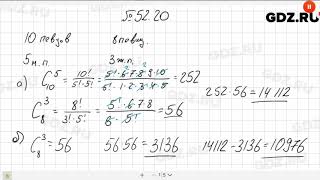 №52.20
GDZ.RU
10 певцов
8 певиц.
5 м.п.
3 ж.п.
а) C₁₀⁵ = 10!/(5!·5!) = 5!·6·7·8·9·10/(5!·1·2·3·4·5) = 252
252·56 = 14 112
C₈³ = 8!/(3!·5!) = 5!·6·7·8/(6·5!) = 56
б) C₈³ = 56
56·56 = 3136
14112 - 3136 = 10976
GDZ.RU